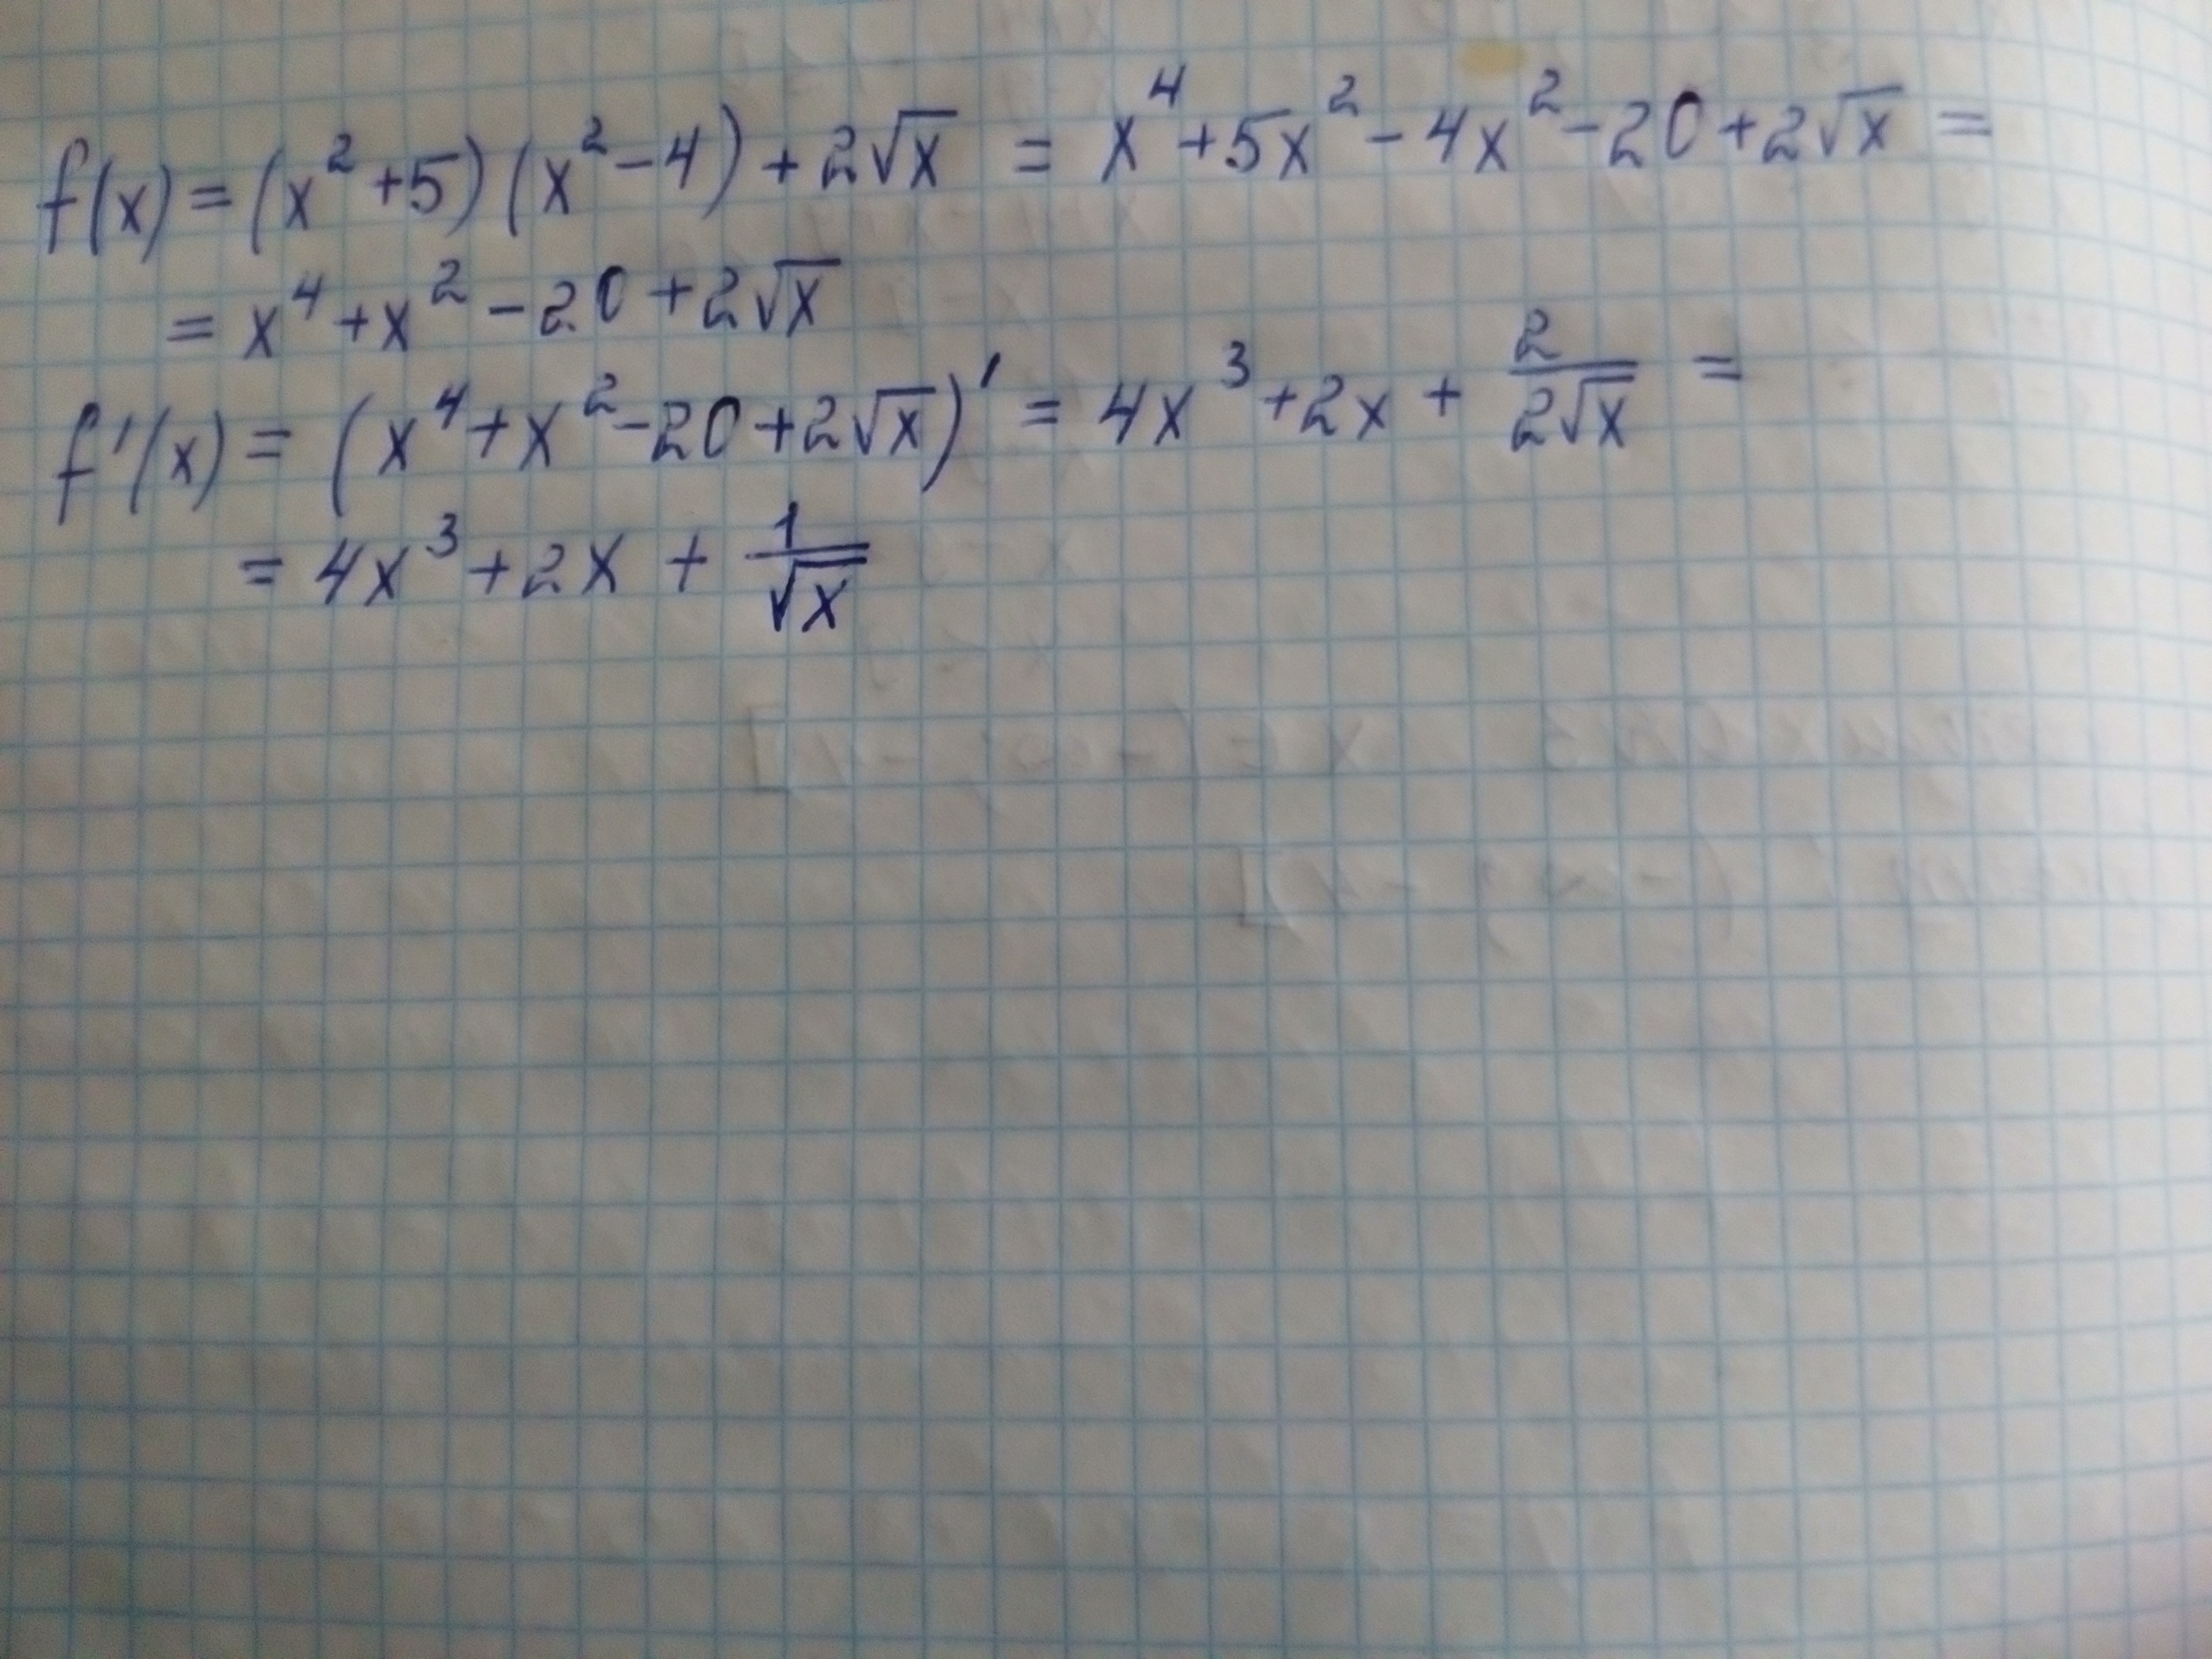 f(x) = (x² + 5)(x² - 4) + 2√x = x⁴ + 5x² - 4x² - 20 + 2√x =
= x⁴ + x² - 20 + 2√x
f'(x) = (x⁴ + x² - 20 + 2√x)' = 4x³ + 2x + 2/(2√x) =
= 4x³ + 2x + 1/√x